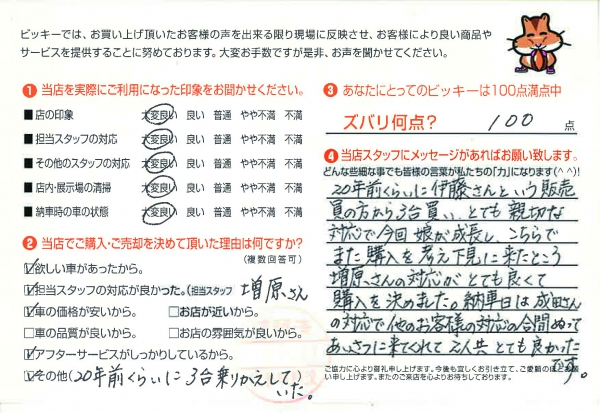 ビッキーでは、お買い上げ頂いたお客様の声を出来る限り現場に反映させ、お客様により良い商品や
サービスを提供することに努めております。大変お手数ですが是非、お声を聞かせてください。
❶ 当店を実際にご利用になった印象をお聞かせください。
■店の印象 大変良い 良い 普通 やや不満 不満
■担当スタッフの対応 大変良い 良い 普通 やや不満 不満
■その他のスタッフの対応 大変良い 良い 普通 やや不満 不満
■店内・展示場の清掃 大変良い 良い 普通 やや不満 不満
■納車時の車の状態 大変良い 良い 普通 やや不満 不満
❷ 当店でご購入・ご売却を決めて頂いた理由は何ですか?
(複数回答可)
☑欲しい車があったから。
☑担当スタッフの対応が良かった。(担当スタッフ 増原さん
☑車の価格が安いから。 □お店が近いから
□車の品質が良いから。 □お店の雰囲気が良いから。
☑アフターサービスがしっかりしているから。
☑その他(20年前くらいに3台乗りかえして)
いた。
❸ あなたにとってのビッキーは100点満点中
ズバリ何点? 100 点
❹ 当店スタッフにメッセージがあればお願い致します。
どんな些細な事でも皆様の言葉が私たちの「力」になります(^^)!
20年前くらいに伊藤さんという販売
員の方から3台買い、とても親切な
対応で今回娘が成長し、こちらで
また購入を考え下見に来たところ
増原さんの対応がとても良くて
購入を決めました。納車日は成田さん
の対応で他のお客様の対応の合間ぬって
あいさつに来てくれて2人共とても良かった
です。
ご協力に心より御礼申し上げます。今後も宜しくお引き立て、ご愛顧のほどお願
い申し上げます。またのご来店を心よりお待ちしております。